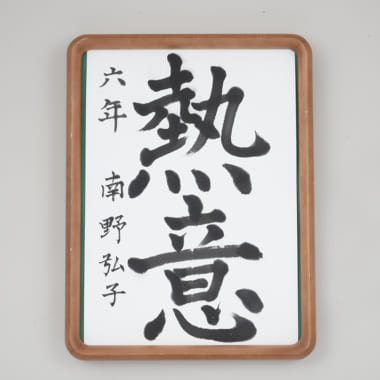 熱意
六年 南野弘子